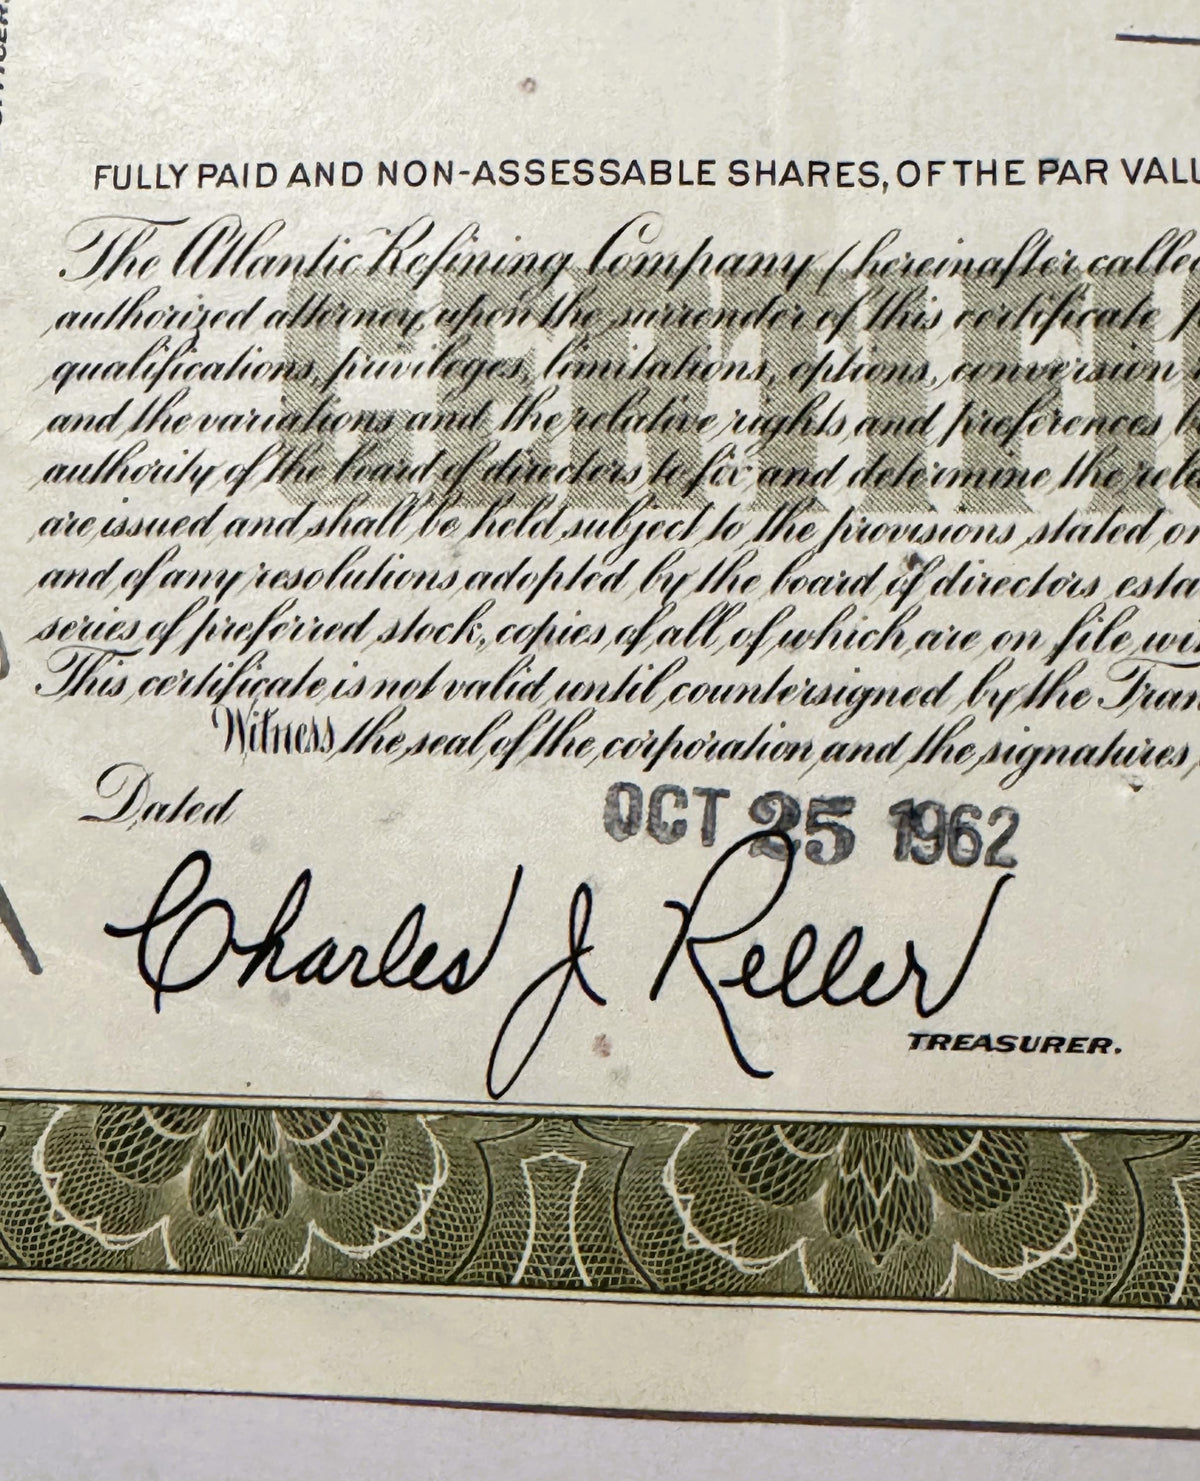 FULLY PAID AND NON-ASSESSABLE SHARES, OF THE PAR VALU
The Atlantic Refining Company (hereinafter called
authorized attorney, upon the surrender of this certificate
qualifications, privileges, limitations, options, conversion
and the variations and the relative rights and preferences
authority of the board of directors to fix and determine the rela
are issued and shall be held subject to the provisions stated on
and of any resolutions adopted by the board of directors esta
series of preferred stock, copies of all of which are on file wi
This certificate is not valid until countersigned by the Tran
Witness the seal of the corporation and the signatures
Dated
OCT 25 1962
Charles J Keller
TREASURER.